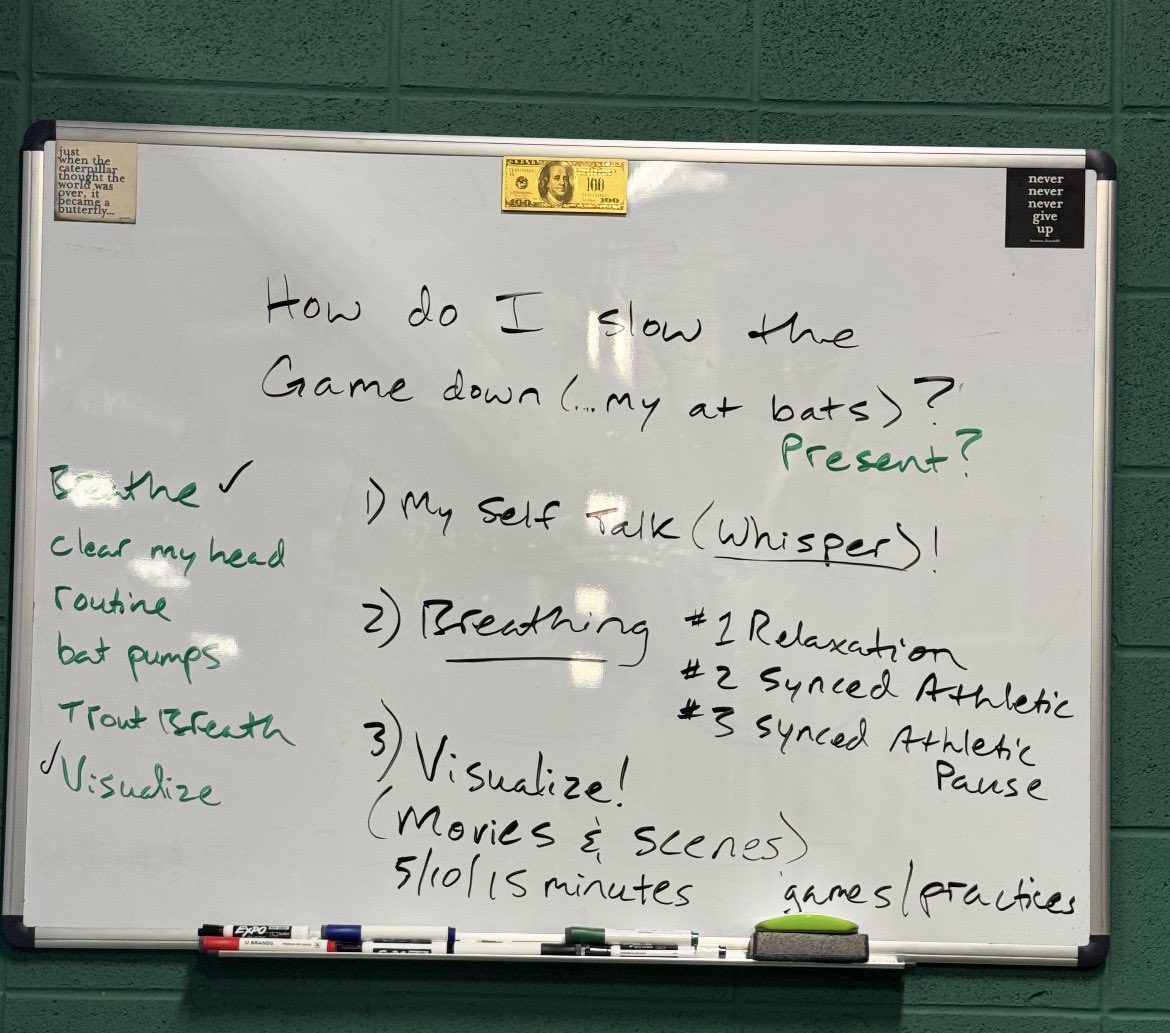 just
when the
caterpillar
thought the
world was
over, it
became a
butterfly...
100
100
100
never
never
never
give
up
How do I slow the
Game down (...my at bats)?
Present?
Breathe ✓
clear my head
routine
bat pumps
Trout Breath
✓Visualize
1) My Self Talk (Whisper)!
2) Breathing #1 Relaxation
#2 Synced Athletic
#3 Synced Athletic
Pause
3) Visualize!
(Movies & Scenes)
5/10/15 minutes games/practices
EXPO
U BRANDS